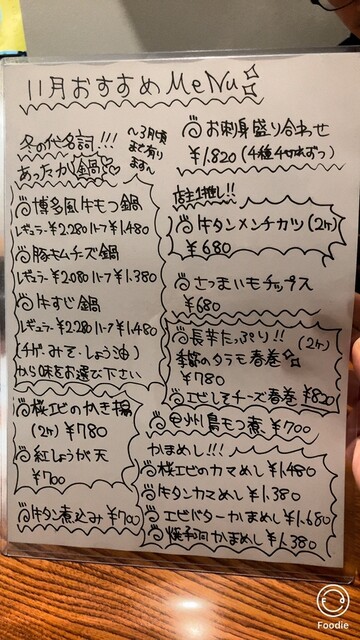 11月おすすめMeNu
冬の代名詞!!!
あったか鍋♡
〜3月頃
まで有り
ます
博多風牛もつ鍋
レギュラー¥2.280 ハーフ¥1.480
豚キムチーズ鍋
レギュラー¥2.080 ハーフ¥1.380
牛すじ鍋
レギュラー¥2.280 ハーフ¥1.480
(チゲ・みそ・しょう油)
から味をお選び下さい
桜エビのかき揚
(2ヶ) ¥780
紅しょうが天
¥700
牛タン煮込み ¥700
お刺身盛り合わせ
¥1.820 (4種4切れずつ)
店主1推し!!
牛タンメンチカツ (2ヶ)
¥680
さつまいもチップス
¥680
長芋たっぷり!! (2ヶ)
季節のタラモ春巻
¥780
エビしそチーズ春巻 ¥820
甲州鳥もつ煮 ¥700
かまめし!!!
桜エビのカマめし ¥1.480
牛タンカマめし ¥1.380
エビバターかまめし ¥1.680
かまめし ¥1.380
Foodie